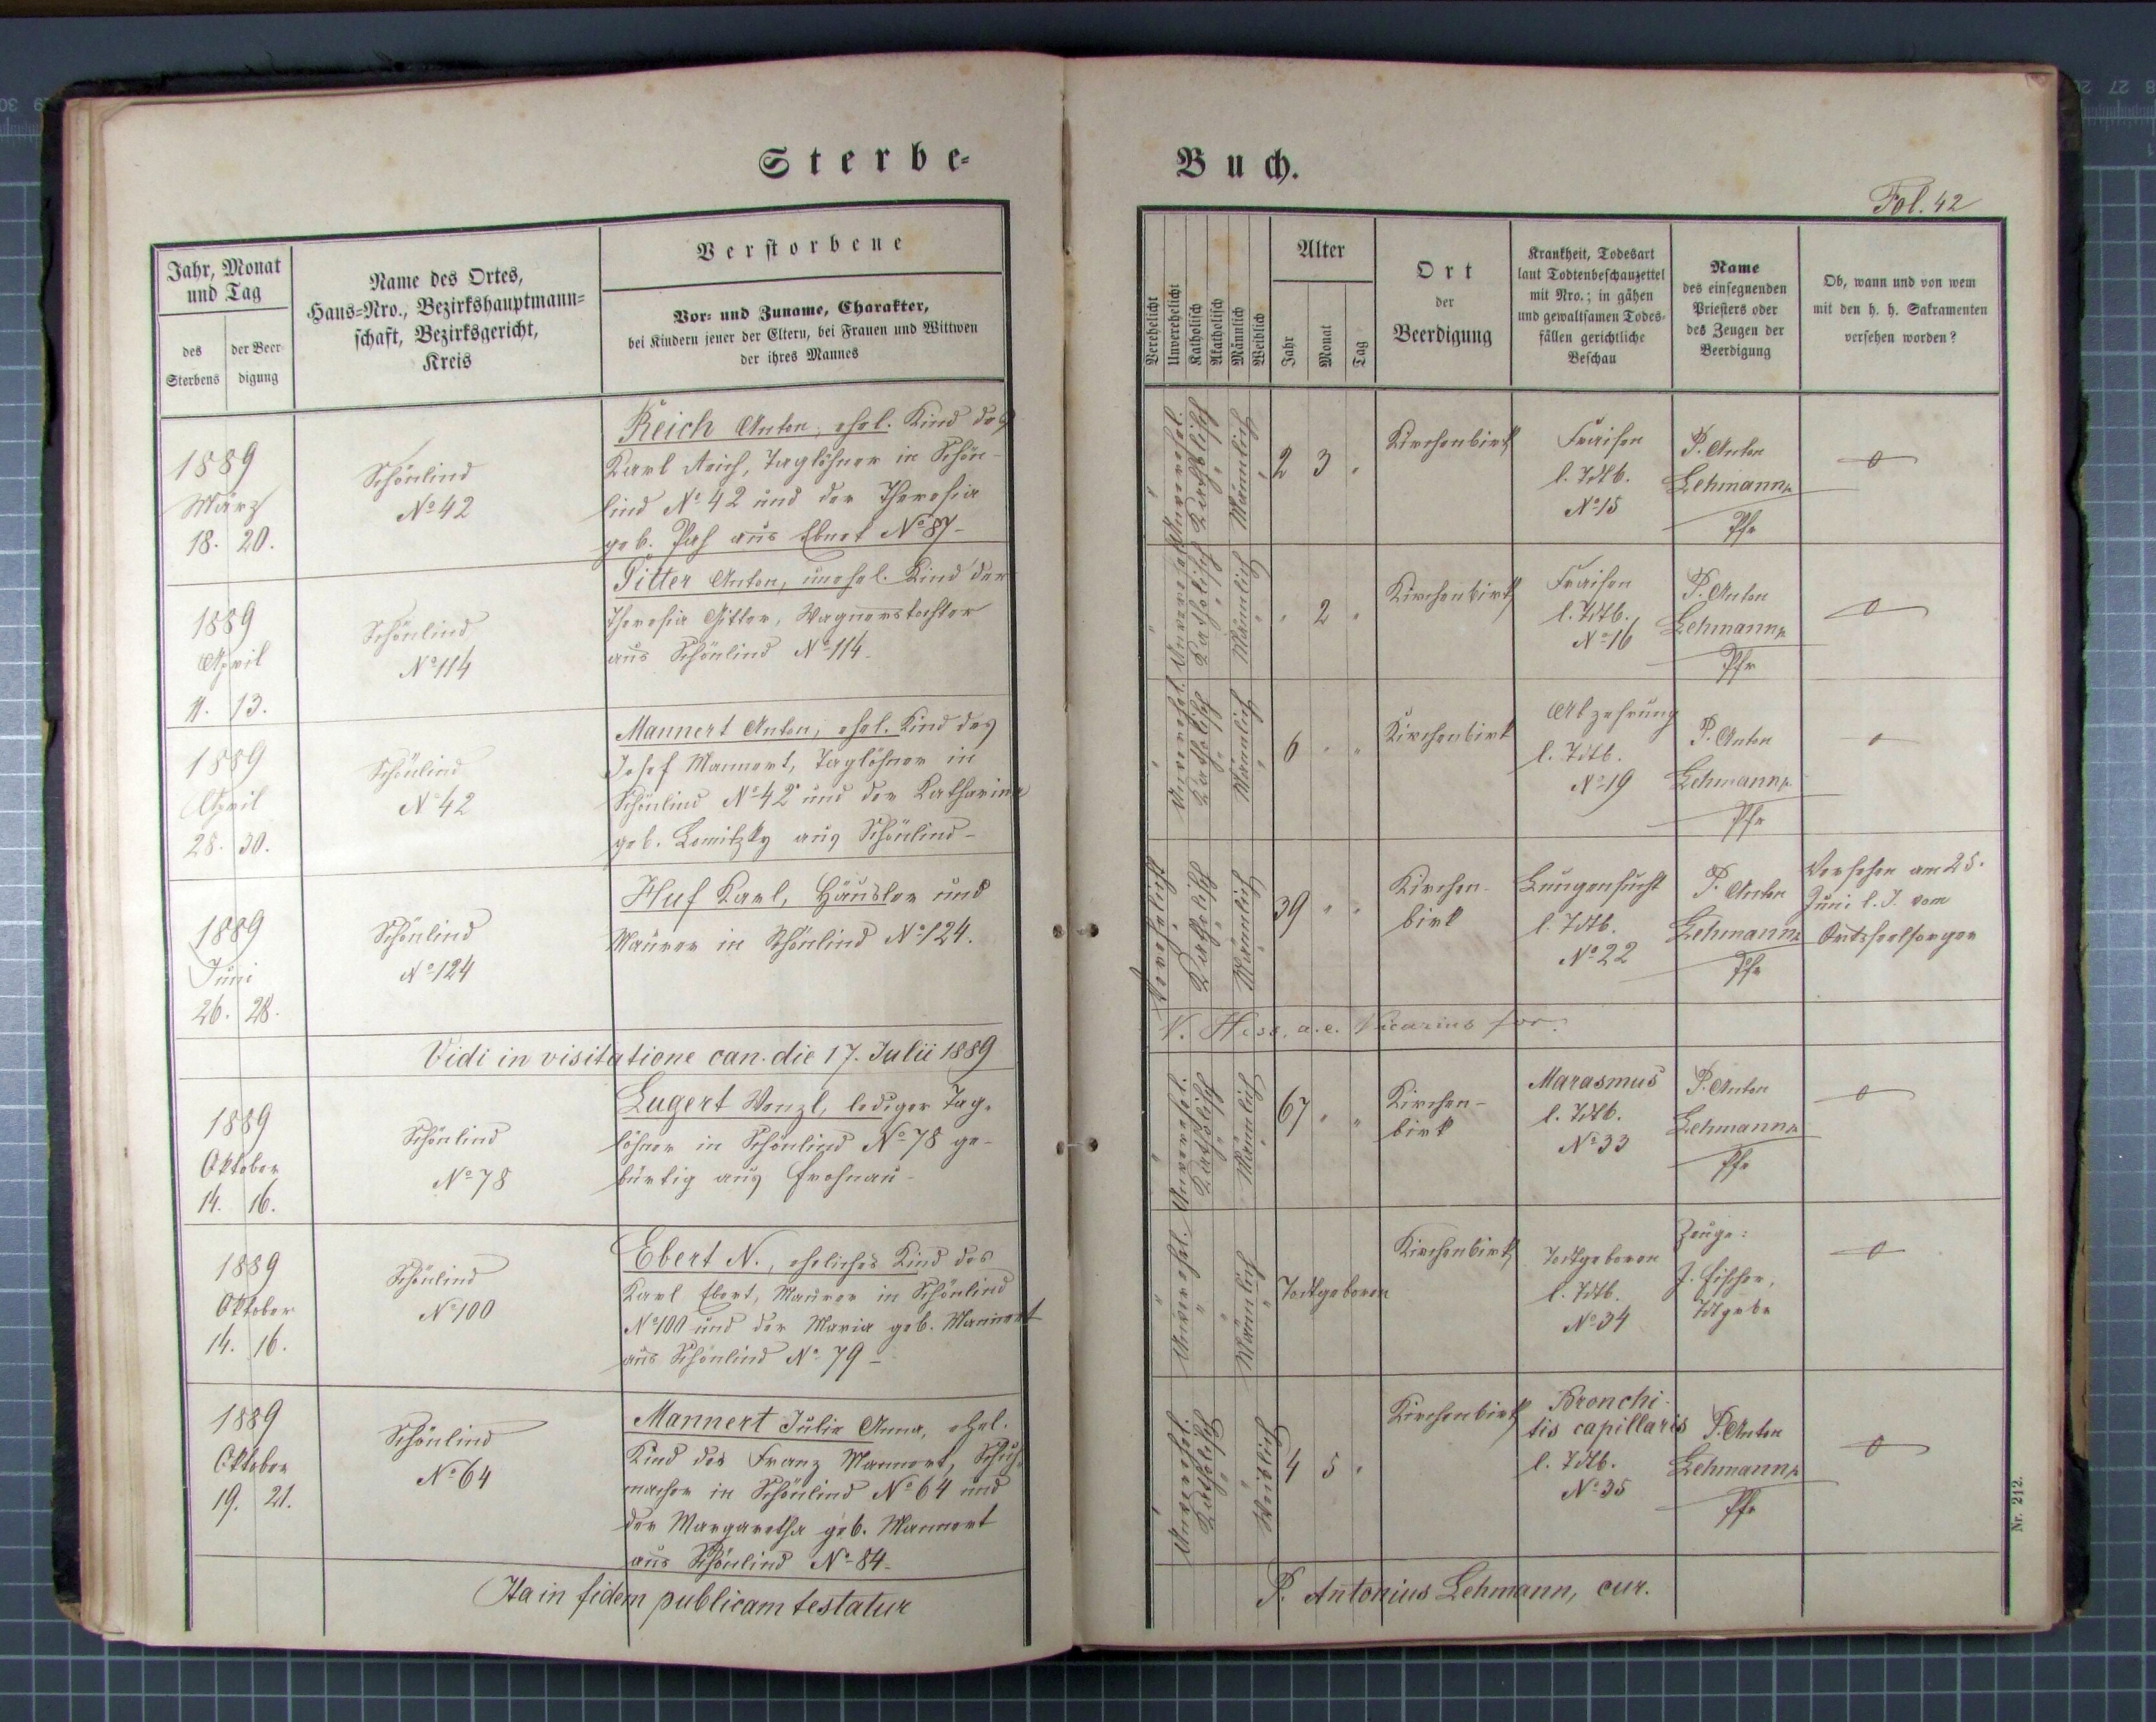 Sterbe-
Jahr, Monat
und Tag
des
Sterbens
der Beer-
digung
Name des Ortes,
Haus-Nro., Bezirkshauptmann-
schaft, Bezirksgericht,
Kreis
Verstorbene
Vor- und Zuname, Charakter,
bei Kindern jener der Eltern, bei Frauen und Wittwen
der ihres Mannes
1889
März
18. 20.
Schönlind
No 42
Reich Anton, ehel. Kind des
Karl Reich, Taglöhner in Schön-
lind No 42 und der Theresia
geb. aus Ebnet No 87-
1889
April
11. 13.
Schönlind
No 114
Anton, unehel. Kind der
Theresia, Wagnerstochter
aus Schönlind No 114.
1889
April
28. 30.
Schönlind
No 42
Mannert Anton, ehel. Kind des
Josef Mannert, Taglöhner in
Schönlind No 42 und der Katharina
geb. Lomitzky aus Schönlind-
1889
Juni
26. 28.
Schönlind
No 124
Huf Karl, Häusler und
Maurer in Schönlind No 124.
Vidi in visitatione can. die 17. Julii 1889
1889
Oktober
14. 16.
Schönlind
No 78
Lugert Wenzl, lediger Tag-
löhner in Schönlind No 78 ge-
bürtig aus Frohnau-
1889
Oktober
14. 16.
Schönlind
No 100
Ebert N., eheliches Kind des
Karl Ebert, Maurer in Schönlind
No 100 und der Maria geb. Mannert
aus Schönlind No 79-
1889
Oktober
19. 21.
Schönlind
No 64
Mannert Julia Anna, ehel.
Kind des Franz Mannert, Schuh-
macher in Schönlind No 64 und
der Margaretha geb. Mannert
aus Schönlind No 84-
Ita in fidem publicam testatur
Buch.
Fol. 42
Verehelicht
Unverehelicht
Katholisch
Akatholisch
Männlich
Weiblich
Alter
Jahr
Monat
Tag
Ort
der
Beerdigung
Krankheit, Todesart
laut Todtenbeschauzettel
mit Nro.; in gähen
und gewaltsamen Todes-
fällen gerichtliche
Beschau
Name
des einsegnenden
Priesters oder
des Zeugen der
Beerdigung
Ob, wann und von wem
mit den h. h. Sakramenten
versehen worden?
" Unverehel. Katholisch " Männlich "
2 3 "
Kirchenbirk
Fraisen
l. Tdtb.
No 15
P. Anton
Lehmann
Pfr
" Unverehel. Katholisch " Männlich "
" 2 "
Kirchenbirk
Fraisen
l. Tdtb.
No 16
P. Anton
Lehmann
Pfr
" Unverehel. Katholisch " Männlich "
6 " "
Kirchenbirk
Abzehrung
l. Tdtb.
No 19
P. Anton
Lehmann
Pfr
Verehelicht Katholisch " Männlich "
39 " "
Kirchen-
birk
Lungensucht
l. Tdtb.
No 22
P. Anton
Lehmann
Pfr
Versehen am 25.
Juni l. J. vom
Ortsseelsorger
Hess, a.e. Vicarius for.
" Unverehel. Katholisch " Männlich "
67 " "
Kirchen-
birk
Marasmus
l. Tdtb.
No 33
P. Anton
Lehmann
Pfr
" Unverehel. " " Männlich "
Todtgeboren
Kirchenbirk
Todtgeboren
l. Tdtb.
No 34
Zeuge:
J. Fischer,
" Unverehel. Katholisch " " Weiblich
4 5 "
Kirchenbirk
Bronchi-
tis capillaris
l. Tdtb.
No 35
P. Anton
Lehmann
Pfr
P. Antonius Lehmann, cur.
Nr. 212.